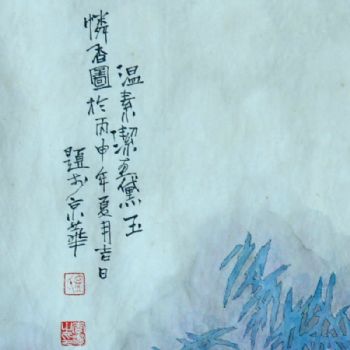 温素潔畫黛玉
憐香圖於丙申年夏月吉日
題於京華